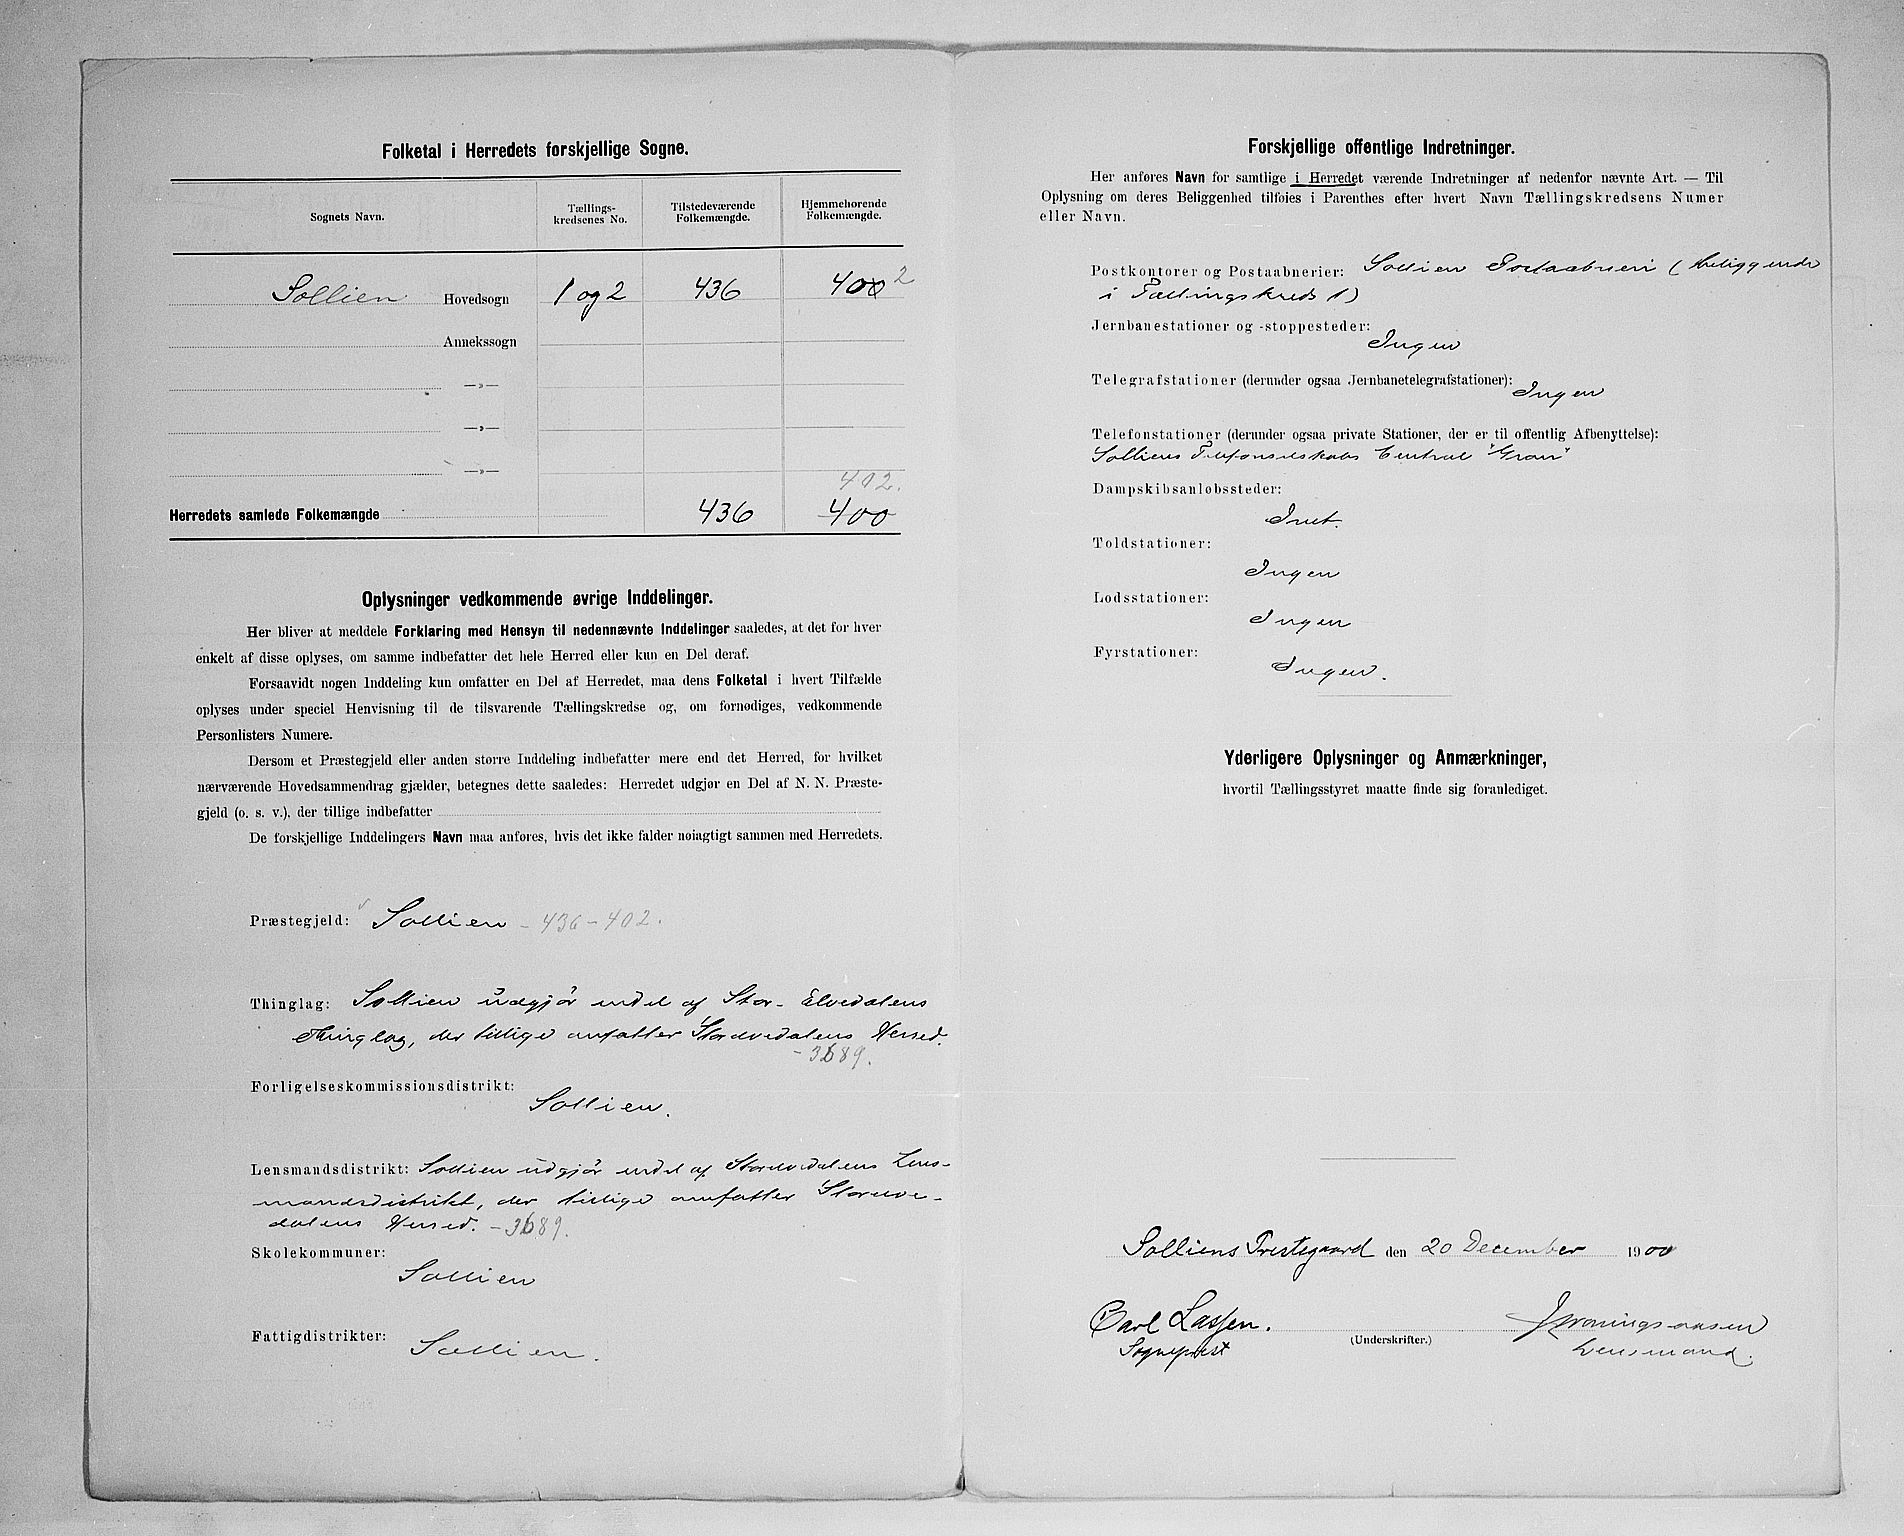 Folketal i Herredets forskjellige Sogne.
Sognets Navn. Tællings- kredsenes No. Tilstedeværende Folkemængde. Hjemmehørende Folkemængde.
Sollien Hovedsogn 1 og 2 436 400 2
Annekssogn
—»—
—»—
—»—
402.
Herredets samlede Folkemængde 436 400
Oplysninger vedkommende øvrige Inddelinger.
Her bliver at meddele Forklaring med Hensyn til nedennævnte Inddelinger saaledes, at det for hver
enkelt af disse oplyses, om samme indbefatter det hele Herred eller kun en Del deraf.
Forsaavidt nogen Inddeling kun omfatter en Del af Herredet, maa dens Folketal i hvert Tilfælde
oplyses under speciel Henvisning til de tilsvarende Tællingskredse og, om fornødiges, vedkommende
Personlisters Numere.
Dersom et Præstegjeld eller anden større Inddeling indbefatter mere end det Herred, for hvilket
nærværende Hovedsammendrag gjælder, betegnes dette saaledes: Herredet udgjør en Del af N. N. Præste-
gjeld (o. s. v.), der tillige indbefatter
De forskjellige Inddelingers Navn maa anføres, hvis det ikke falder nøiagtigt sammen med Herredets.
Præstegjeld: Sollien - 436 - 402.
Thinglag: Sollien udgjør endel af Stor-Elvedalens
Thinglag, der tillige omfatter Storelvedalens Herred.
- 3689.
Forligelseskommissionsdistrikt:
Sollien.
Lensmandsdistrikt: Sollien udgjør endel af Storelvedalens Lens-
mandsdistrikt, der tillige omfatter Storelve-
dalens Herred. - 3689.
Skolekommuner:
Sollien
Fattigdistrikter:
Sollien.
Forskjellige offentlige Indretninger.
Her anføres Navn for samtlige i Herredet værende Indretninger af nedenfor nævnte Art. — Til
Oplysning om deres Beliggenhed tilføies i Parenthes efter hvert Navn Tællingskredsens Numer
eller Navn.
Postkontorer og Postaabnerier: Sollien Postaabneri (beliggende
i Tællingskreds 1)
Jernbanestationer og -stoppesteder:
Ingen
Telegrafstationer (derunder ogsaa Jernbanetelegrafstationer):
Ingen
Telefonstationer (derunder ogsaa private Stationer, der er til offentlig Afbenyttelse):
Solliens Telefonselskabs Central "Gran"
Dampskibsanløbssteder:
Intet.
Toldstationer:
Ingen
Lodsstationer:
Ingen
Fyrstationer:
Ingen.
Yderligere Oplysninger og Anmærkninger,
hvortil Tællingsstyret maatte finde sig foranlediget.
Solliens Prestegaard den 20 December 1900
Carl Lassen.
Sogneprest
(Underskrifter.)
Lensmand.